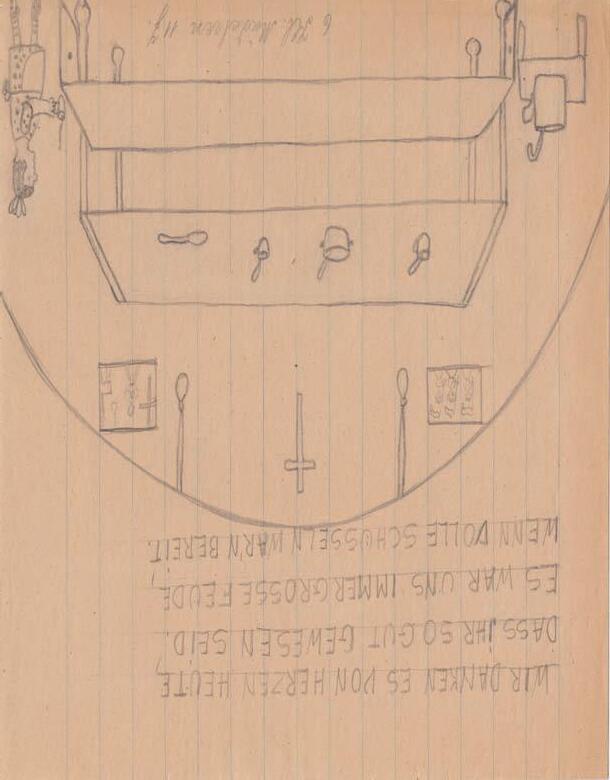 WIR DANKEN ES VON HERZEN HEUTE,
DASS JHR SO GUT GEWESEN SEID.
ES WAR UNS IMMER GROSSE FEUDE,
WENN VOLLE SCHÜSSELN WAR'N BEREIT.
6 Kl. Mädchen